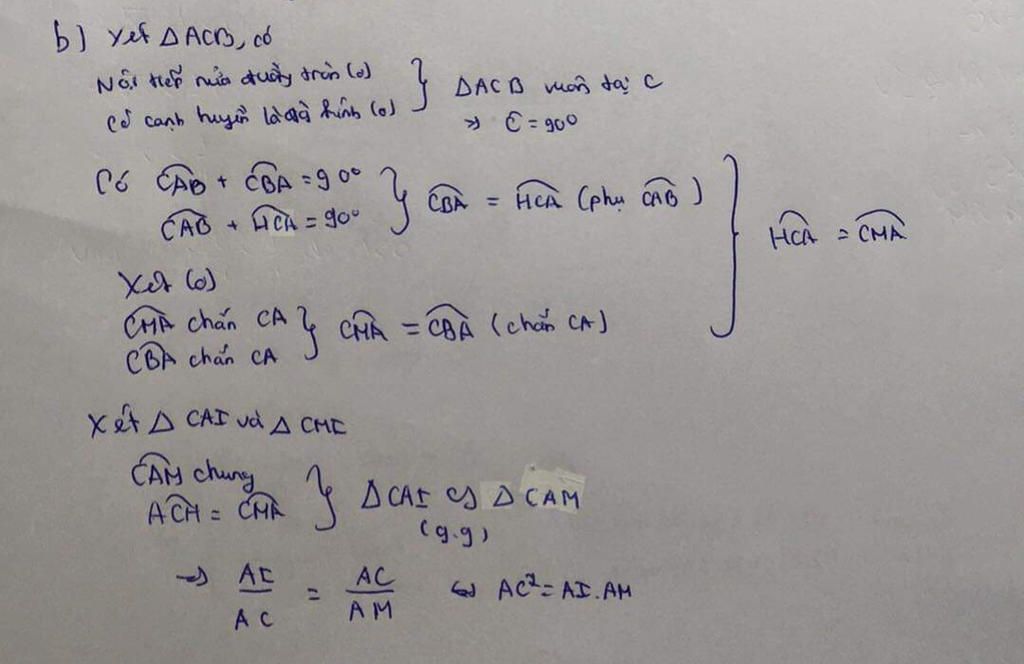 b) Xét ΔACB, có
Nội tiếp nửa đường tròn (O)
Có cạnh huyền là đường kính (O)
} ΔACB vuông tại C
⇒ Ĉ = 90°
Có CAB + CBA = 90°
CAB + HCA = 90°
} CBA = HCA (phụ CAB)
Xét (O)
CMA chắn CA
CBA chắn CA
} CMA = CBA (chắn CA)
} HCA = CMA
Xét Δ CAI và Δ CMI
CAM chung
ACH = CMA
} ΔCAI ∽ Δ CAM
(g.g)
→ AI/AC = AC/AM ⇔ AC² = AI.AM